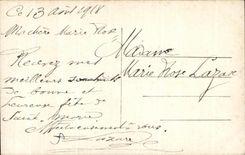 Ce 13 Août 1918
Ma chère Marie Rose
Recevez mes
meilleurs souhaits
de bonne et
heureuse fête de
Sainte Marie
Affectueusement à vous.
Madame
Marie Rose Lazare